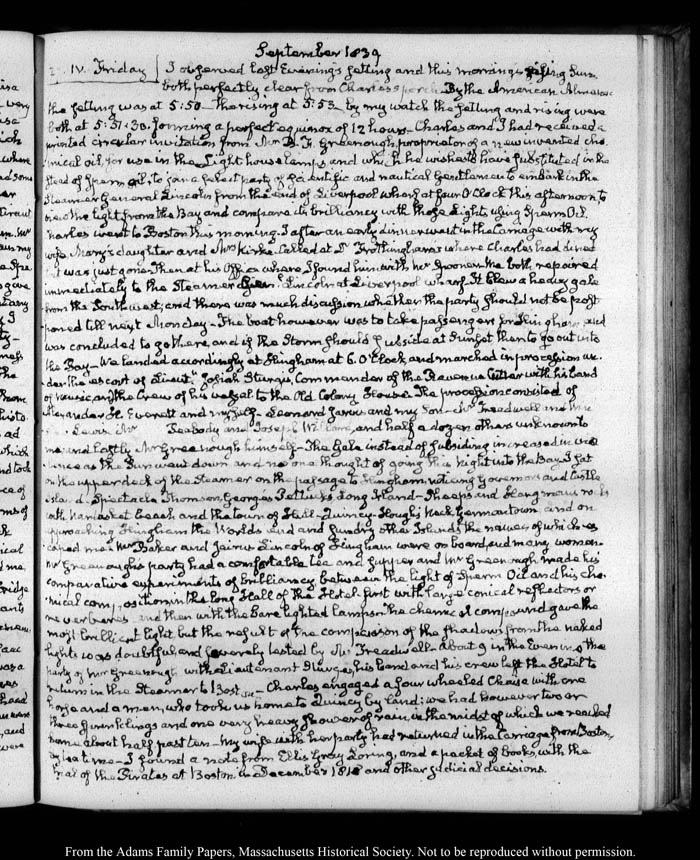 September 1839
IV. Friday I observed last Evening's setting and this morning's rising Sun.
both perfectly clear from Charles's porch. By the American Almanac
the setting was at 5:50 The rising at 5:53 by my watch the setting and rising were
both at 5:57:30. forming a perfect equinox of 12 hours_ Charles and I had received a
printed circular invitation from Mr B. F. Greenough, proprietor of a new invented che-
mical oil, for use in the Light house lamps and which he wishes to have substituted in the
stead of Sperm oil, to join a select party of scientific and nautical Gentlemen to embark in the
Steamer General Lincoln from the end of Liverpool wharf at four O'Clock this afternoon to
view the light from the Bay and compare its brilliancy with those Lights using Sperm Oil.
Charles went to Boston this morning. I after an early dinner went in the Carriage with my
wife, Mary's daughter and Mrs Kirke. Called at Dr Frothingham's where Charles had dined
it was just gone. Then at his Office where I found him with Mr Spooner. We both repaired
immediately to the Steamer Gen. Lincoln at Liverpool wharf. It blew a heavy gale
from the Southwest, and there was much discussion whether the party should not be post-
poned till next Monday_ The boat however was to take passengers for Hingham and
was concluded to go there, and if the Storm should subside at Sunset then to go out into
the Bay_ We landed accordingly at Hingham at 6. O'Clock, and marched in procession un-
der the escort of Lieut.t Josiah Sturgis, Commander of the Revenue Cutter with his band
of music, and the Crew of his vessel to the Old Colony House. The procession consisted of
Alexander H. Everett and myself_ Leonard Jarvis and my Son_ Mr Treadwell and
Lewis Mr Peabody and Joseph and half a dozen others unknown to
me and lastly Mr Greenough himself_ The Gale instead of subsiding increased in
as the Sun went down and no one thought of going this night into the Bay. I sat
on the upper deck of the Steamer on the passage to Hingham, noticing Governors and Castle
Island. Spectacle Thomson, Georges Pettucks Long Island_ Sheeps and Hangman rocks
with Nantasket beach and the town of Hull_ Quincy_ Hough's Neck Germantown, and on
approaching Hingham the Worlds End and sundry other Islands the names of which es-
caped me. Mr Baker and Jairus Lincoln of Hingham were on board, and many women.
Mr Greenough's party had a comfortable tea and supper and Mr Greenough made his
comparative experiments of brilliancy between the light of Sperm Oil and his che-
mical composition, in the long Hall of the Hotel first with large conical reflectors or
reverberes and then with the bare lighted lamps. The chemical compound gave the
most brilliant light but the result of the comparison of the shadows from the naked
lights was doubtful, and severely tested by Mr Treadwell_ About 9 in the Evening the
party of Mr Greenough with Lieutenant Sturgis, his band and his crew left the Hotel to
return in the Steamer to Boston_ Charles engaged a four wheeled Chaise with one
horse and a man, who took us home to Quincy by land; we had however two or
three sprinklings and one very heavy shower of rain, in the midst of which we reached
home about half past ten_ My wife with her party had returned in the Carriage from Boston,
before me_ I found a note from Ellis Gray Loring, and a packet of books, with the
trial of the Pirates at Boston in December 1818 and other judicial decisions.
From the Adams Family Papers, Massachusetts Historical Society. Not to be reproduced without permission.